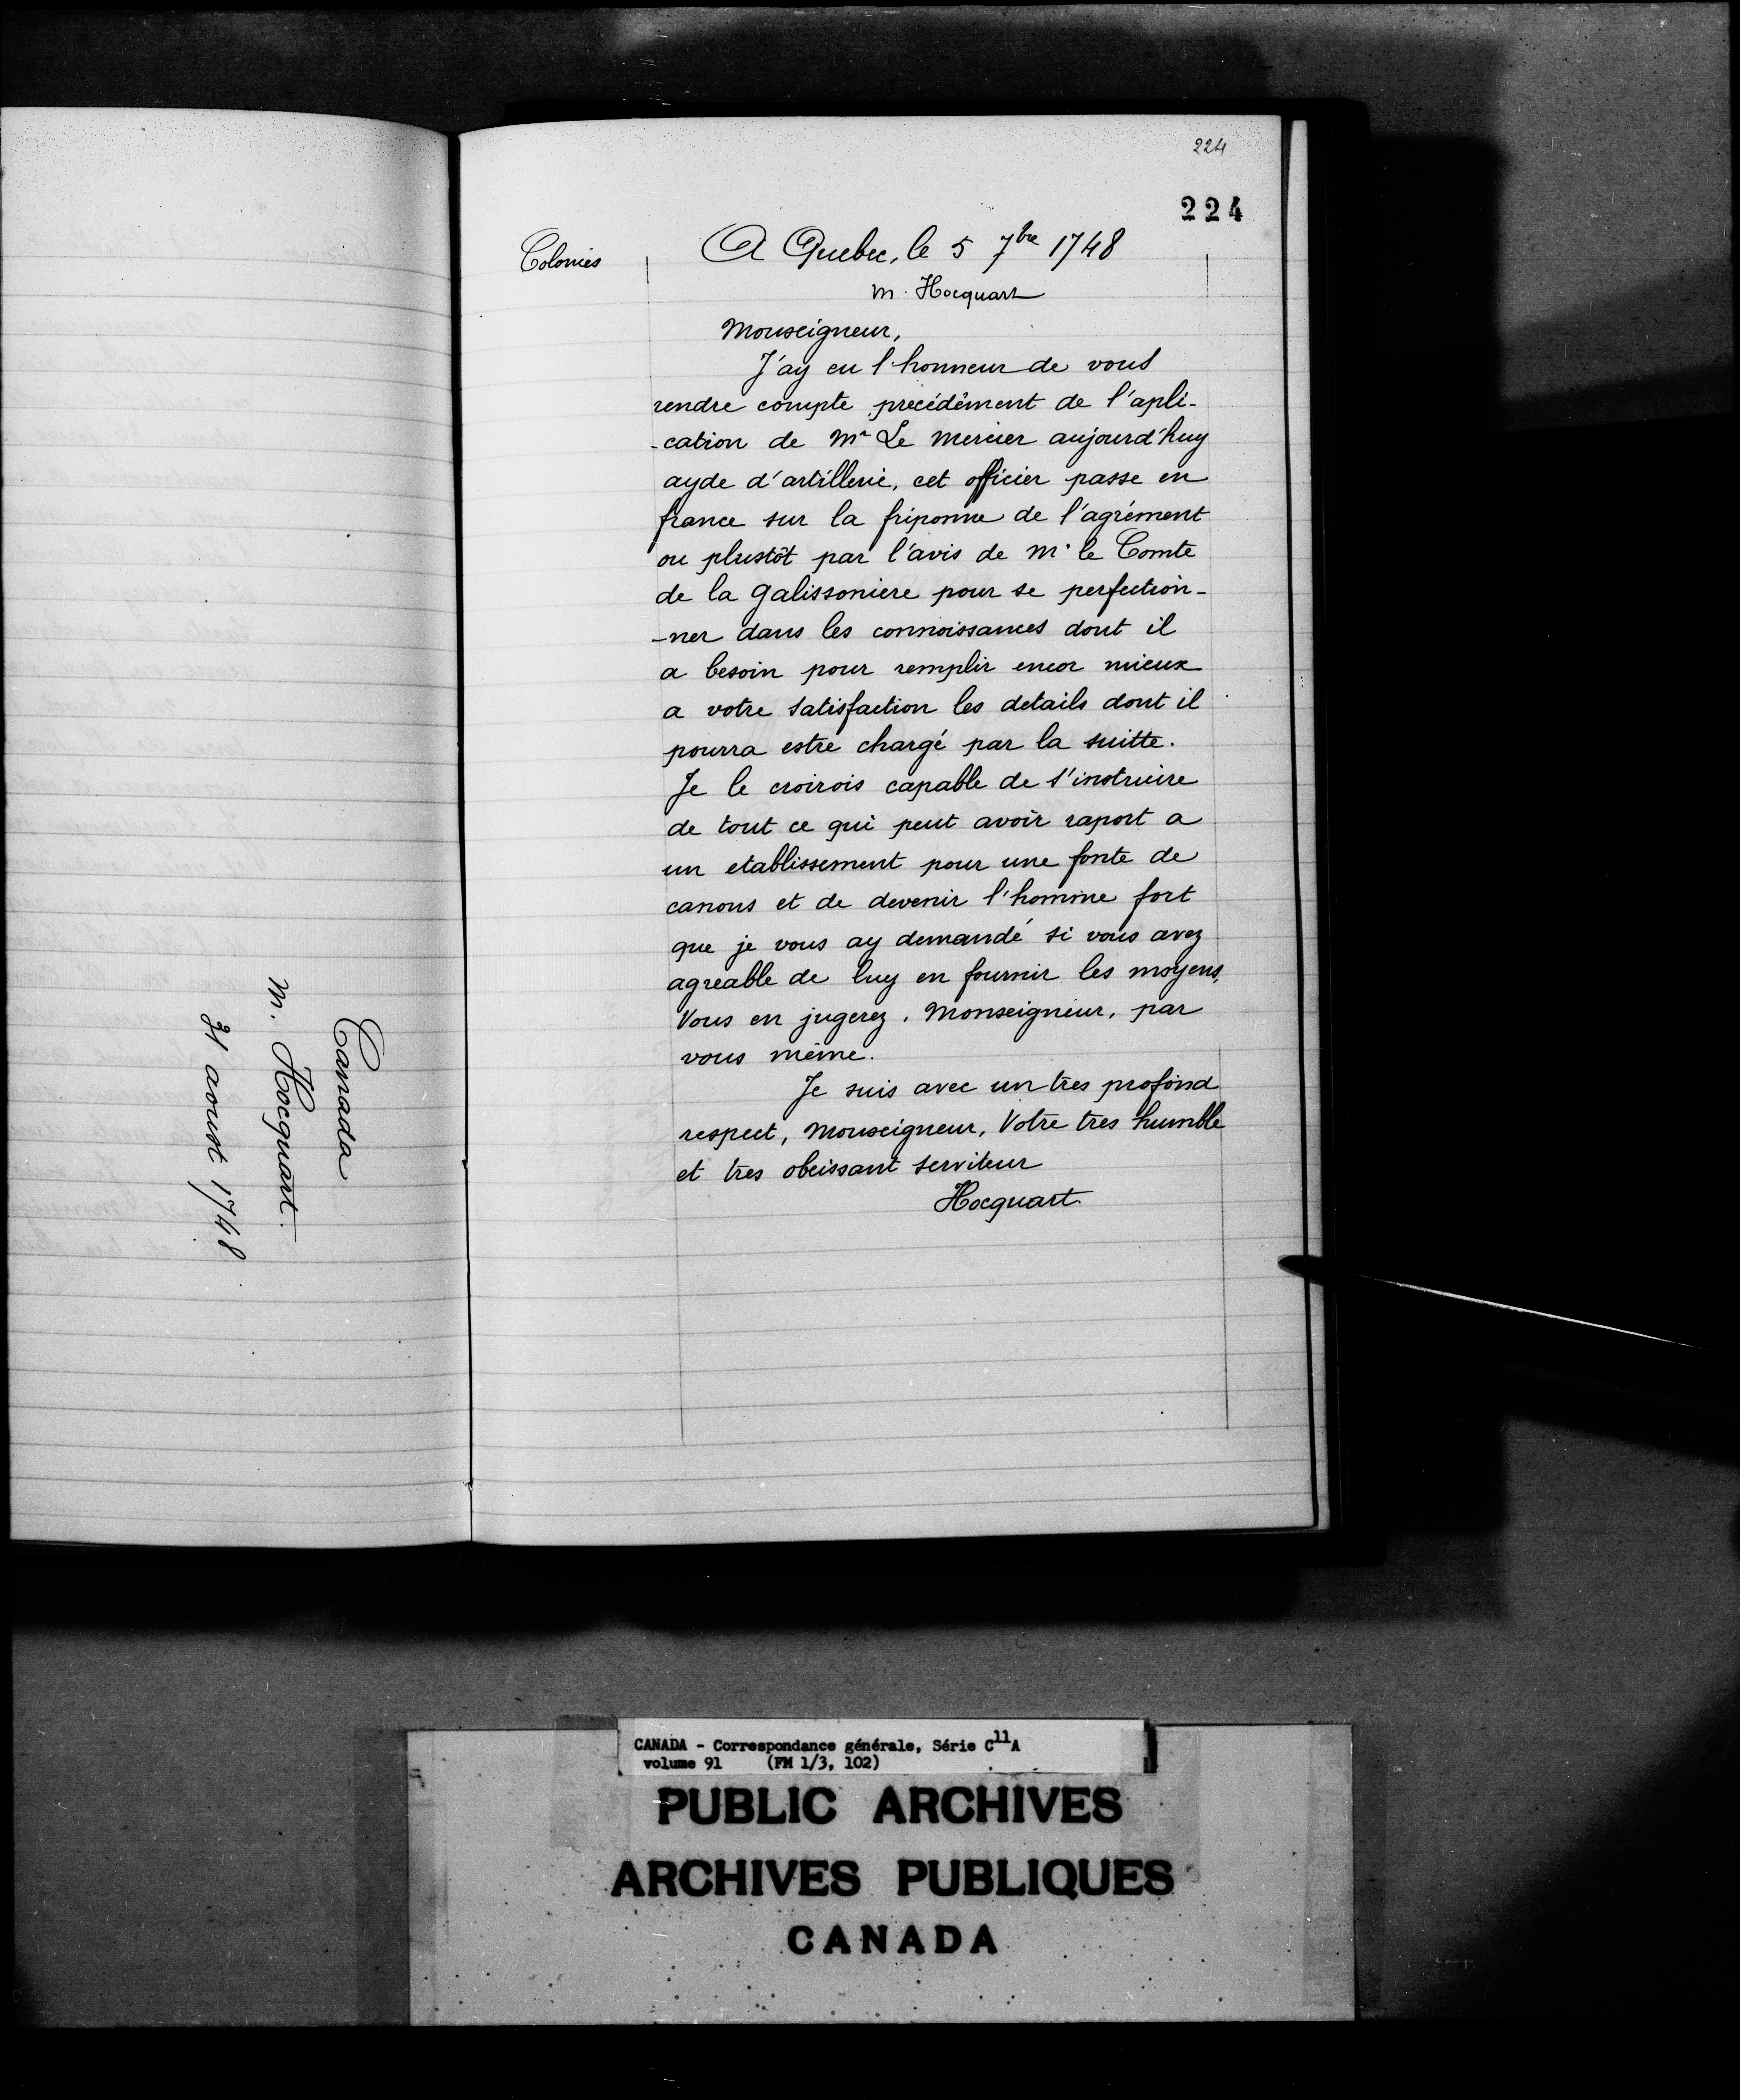 Canada
M. Hocquart.
31 aoust 1748
224
224
Colonies
A Quebec, le 5 7bre 1748
M. Hocquart
Monseigneur,
J'ay eu l'honneur de vous
rendre compte precédément de l'apli-
-cation de Mr Le Mercier aujourd'huy
ayde d'artillerie, cet officier passe en
france sur la friponne de l'agrément
ou plustôt par l'avis de Mr le Comte
de la galissoniere pour se perfection-
-ner dans les connoissances dont il
a besoin pour remplir encor mieux
a votre satisfaction les details dont il
pourra estre chargé par la suitte.
Je le croirois capable de s'instruire
de tout ce qui peut avoir raport a
un etablissement pour une fonte de
canons et de devenir l'homme fort
que je vous ay demandé si vous avez
agreable de luy en fournir les moyens,
Vous en jugerez, Monseigneur, par
vous même.
Je suis avec un tres profond
respect, Monseigneur, Votre tres humble
et tres obeissant serviteur
Hocquart.
CANADA - Correspondance générale, Série C11A
volume 91 (FM 1/3, 102)
PUBLIC ARCHIVES
ARCHIVES PUBLIQUES
CANADA